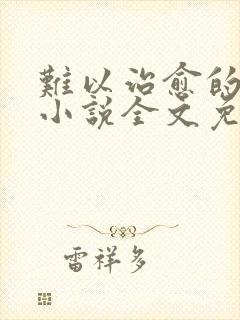 難以治愈的
小說全文免
雷祥多